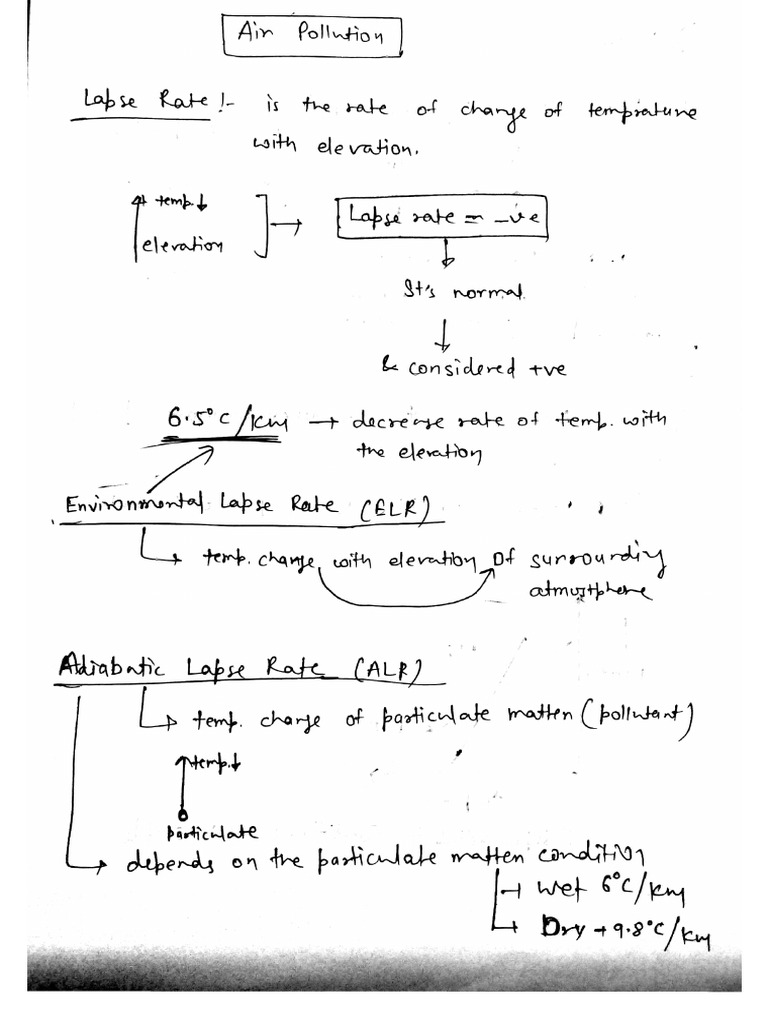 Air Pollution
Lapse Rate :- is the rate of change of temprature
with elevation.
↑ temp.↓
elevation
→ Lapse rate = -ve
It's normal
& considered +ve
6.5°C/km → decrease rate of temp. with
the elevation
Environmental Lapse Rate (ELR)
↳ temp. change with elevation of surrounding
atmostphere
Adiabatic Lapse Rate (ALR)
↳ temp. change of particulate matter (pollutant)
↑temp.↓
particulate
↳ depends on the particulate matter condition
→ Wet 6°C/km
↳ Dry → 9.8°C/km